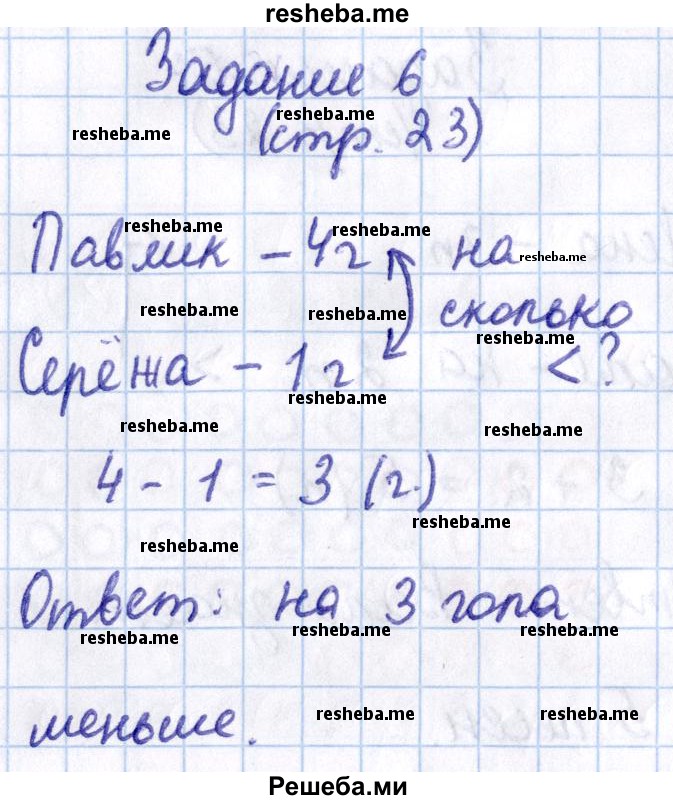 resheba.me
Задание 6
resheba.me resheba.me
(стр. 23)
resheba.me resheba.me
Павлик – 4г на resheba.me
resheba.me resheba.me сколько
resheba.me
Серёжа – 1г < ?
resheba.me
resheba.me resheba.me
4 - 1 = 3 (г.)
resheba.me
resheba.me
Ответ: на 3 гопа
resheba.me resheba.me resheba.me
меньше. resheba.me resheba.me
Решеба.ми